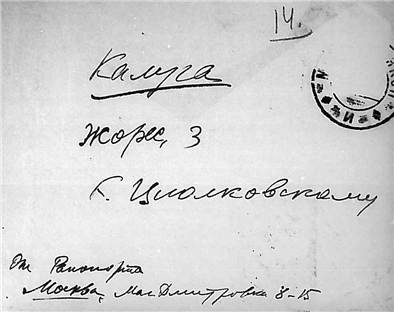 14.
Калуга
Жорес, 3
К. Циолковскому
От Рапопорта
Москва, Мал Дмитровка 8-15